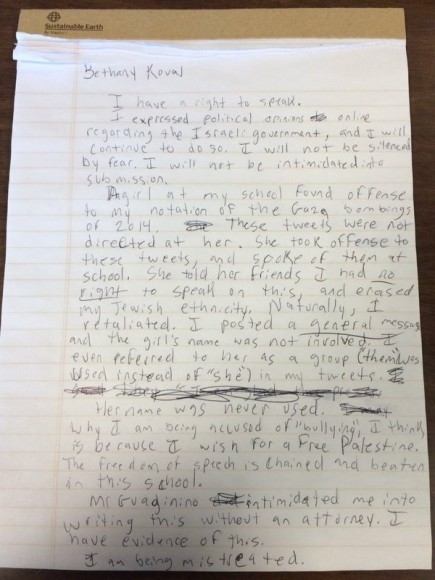 Sustainable Earth
By Staples
Bethany Koval
I have a right to speak.
I expressed political opinions online
regarding the Israeli government, and I will
continue to do so. I will not be silenced
by fear. I will not be intimidated into
submission.
A girl at my school found offense
to my notation of the Gaza bombings
of 2014. These tweets were not
directed at her. She took offense to
these tweets, and spoke of them at
school. She told her friends I had no
right to speak on this, and erased
my Jewish ethnicity. Naturally, I
retaliated. I posted a general message
and the girl's name was not involved. I
even refeired to her as a group (them was
used instead of "she") in my tweets.
Her name was never used.
Why I am being accused of "bullying", I think
is because I wish for a Free Palestine.
The freedom of speech is chained and beaten
in this school.
Mr Guaginino intimidated me into
writing this without an attorney. I
have evidence of this.
I am being mistreated.